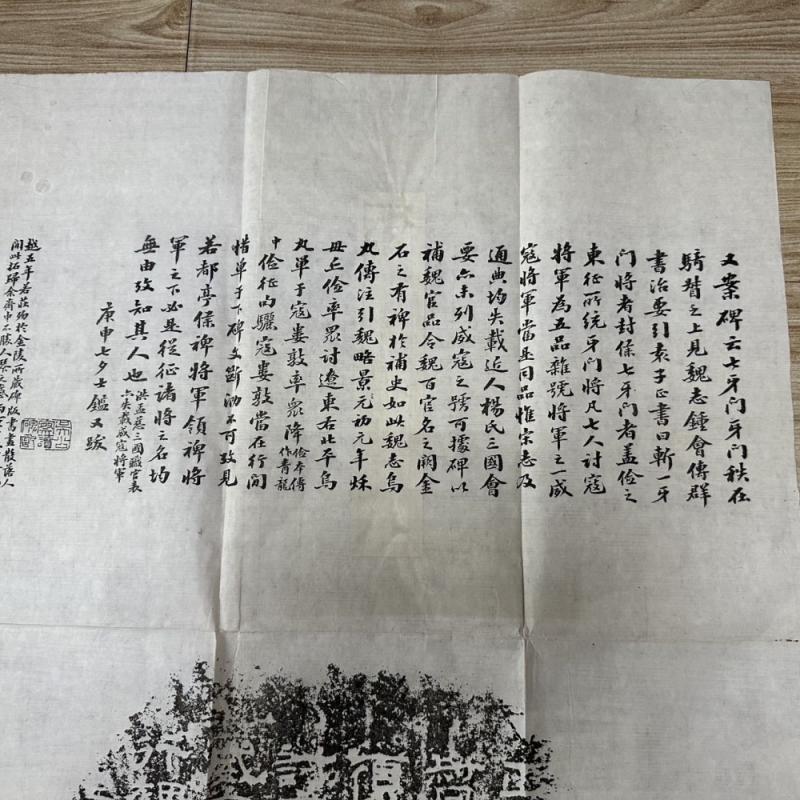 又案碑云七牙門牙門秩在
騎督之上見魏志鍾會傳群
書治要引袁子正書曰斬一牙
門將者封侯七牙門者蓋儉之
東征所統牙門將凡七人討寇
將軍為五品雜號將軍之一威
寇將軍當是同品惟宋志及
通典均失載近人楊氏三國會
要亦未列威寇之號可據碑以
補魏官品令魏百官名之闕金
石之有裨於補史如此魏志烏
丸傳注引魏略景元初元年秋
毌丘儉率眾討遼東右北平烏
丸單于寇婁敦率眾降儉本傳作青龍
中儉征句驪寇婁敦當在行間
惜單于下碑文斷泐不可攷見
若都亭侯裨將軍領裨將
軍之下必是從征諸將之名均
無由攷知其人也洪孟慈三國職官表亦失載威寇將軍
庚申七夕士鑑又跋
越五年若莊殉於金陵所藏碑版書畫散落人
間此拓歸余齋中不勝人琴之